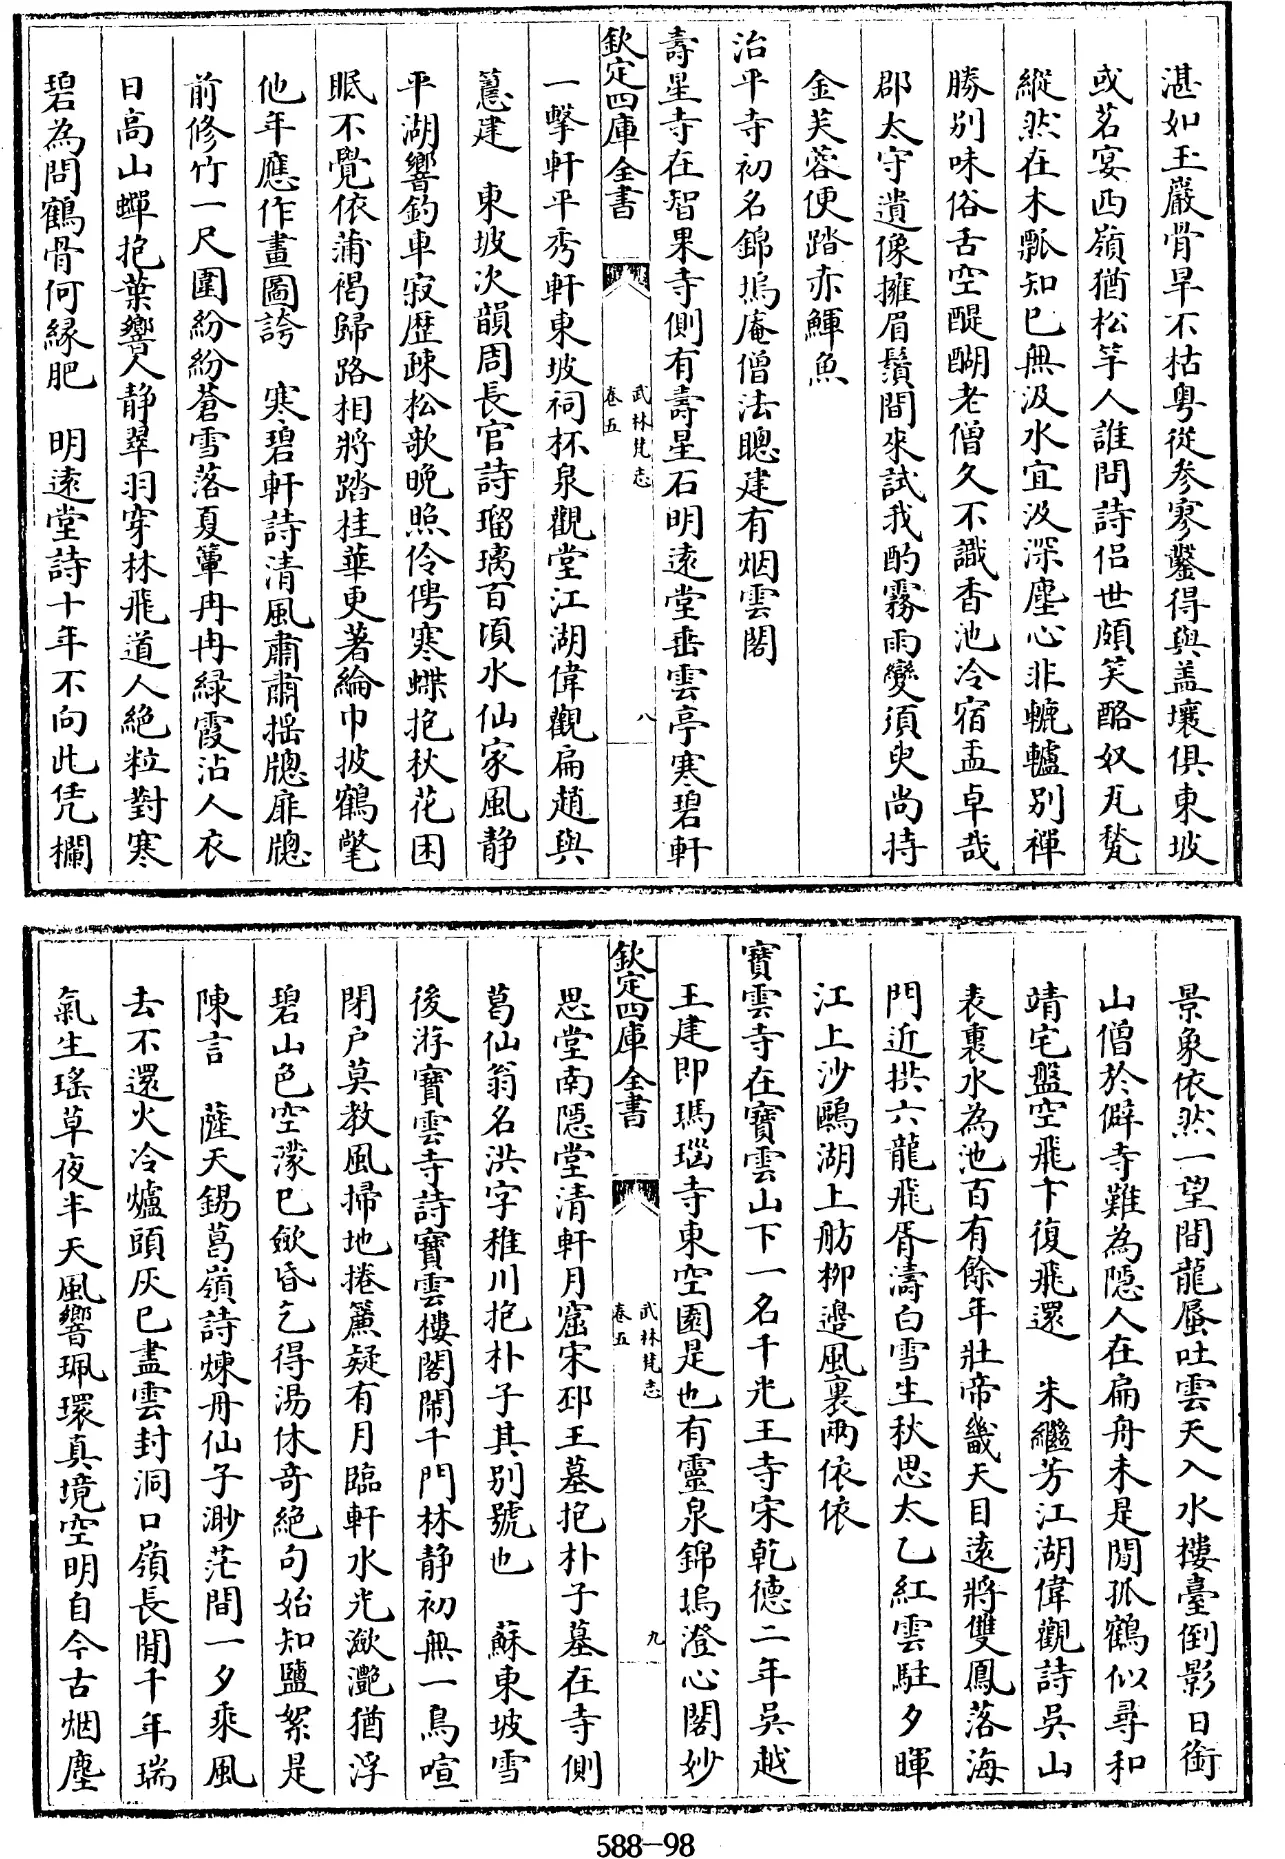 湛如玉巖骨旱不枯粤從参寥鑿得與盖壤俱東坡
或茗宴西嶺猶松竽人誰問詩侣世頗笑酪奴瓦甃
縱然在木瓢知已無汲水宜汲深塵心非轆轤别禪
勝别味俗舌空醍醐老僧久不識香池冷宿盂卓哉
郡太守遺像擁眉鬚間來試我酌霧雨變須臾尚持
金芙蓉便踏赤鯶魚
治平寺初名錦塢庵僧法聰建有烟雲閣
壽星寺在智果寺側有壽星石明遠堂垂雲亭寒碧軒
欽定四庫全書
武林梵志
卷五
八
一擊軒平秀軒東坡祠杯泉觀堂江湖偉觀扁趙與
𥲅建　東坡次韻周長官詩瑠璃百頃水仙家風静
平湖響釣車寂歴疎松歌晚照伶俜寒蝶抱秋花困
眠不覺依蒲褐歸路相將踏桂華更著綸巾披鶴氅
他年應作畫圖誇　寒碧軒詩清風肅肅揺牕扉牕
前修竹一尺圍紛紛蒼雪落夏簟冉冉緑霞沾人衣
日高山蟬抱葉響人静翠羽穿林飛道人絶粒對寒
碧為問鶴骨何縁肥　明遠堂詩十年不向此凭欄
景象依然一望間龍蜃吐雲天入水樓臺倒影日銜
山僧於僻寺難為隠人在扁舟未是閒孤鶴似尋和
靖宅盤空飛下復飛還　朱繼芳江湖偉觀詩吳山
表裏水為池百有餘年壯帝畿天目逺將雙鳳落海
門近拱六龍飛胥濤白雪生秋思太乙紅雲駐夕暉
江上沙鷗湖上舫柳邉風裏兩依依
寶雲寺在寶雲山下一名千光王寺宋乾德二年吳越
王建即瑪瑙寺東空園是也有靈泉錦塢澄心閣妙
欽定四庫全書
武林梵志
卷五
九
思堂南隠堂清軒月窟宋邳王墓抱朴子墓在寺側
葛仙翁名洪字稚川抱朴子其别號也　蘇東坡雪
後游寶雲寺詩寶雲樓閣閙千門林静初無一鳥喧
閉户莫教風掃地捲簾疑有月臨軒水光瀲灔猶浮
碧山色空濛已歛昏乞得湯休奇絶句始知鹽絮是
陳言　薩天錫葛嶺詩煉丹仙子渺茫間一夕乘風
去不還火冷爐頭灰已盡雲封洞口嶺長閒千年瑞
氣生瑤草夜半天風響珮環真境空明自今古烟塵
588-98